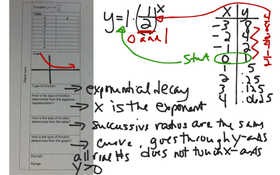 y=1·(1/2)^x
0 and 1
Start
x y
-3 8
-2 4
-1 2
0 1
1 .5
2 .25
3 .125
4 .0625
Type of function:
→ exponential decay
How is the type of function determined from the algebraic representation?
→ x is the exponent
How is the type of function determined from the table?
→ successive radios are the same
How is the type of function determined from the graph?
→ curve, goes through y-axis
does not touch x-axis
Domain: all real #s
Range: y>0